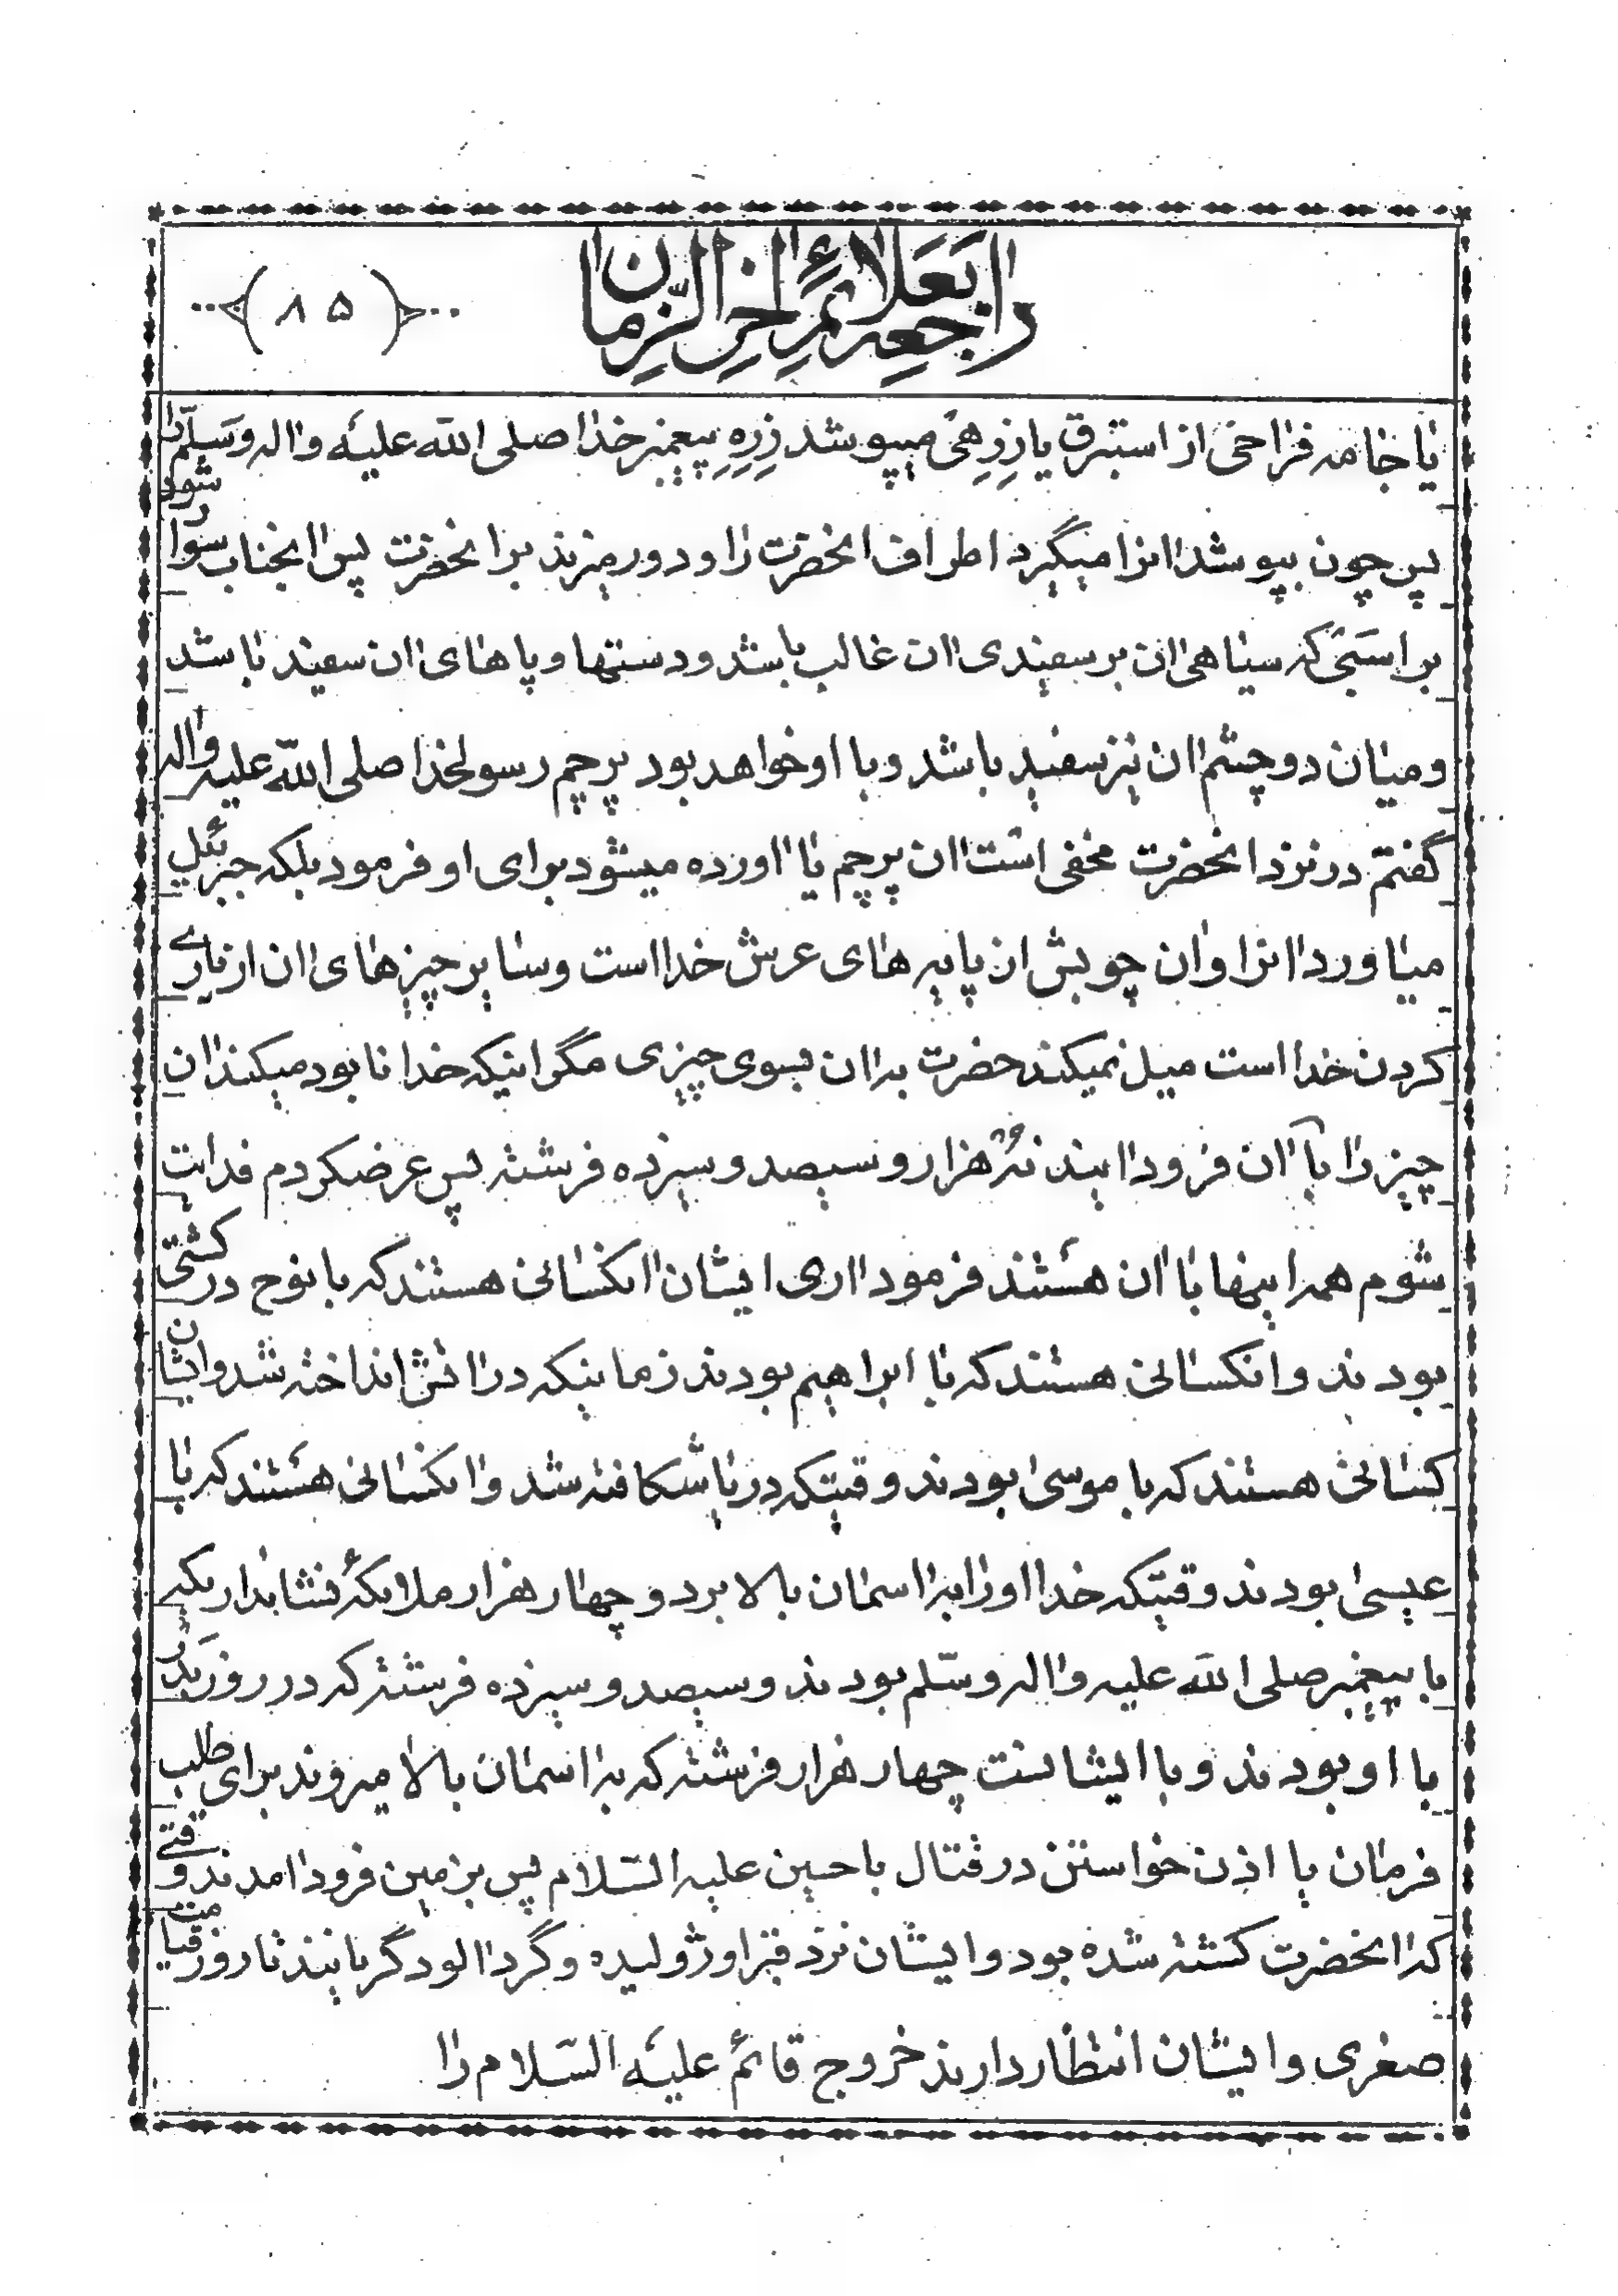 راجعه بعلائم اخر الزمان
( ۸۵ )
یا جامه فراخی از استبرق یا زرهی میپوشد زره پیغمبر خدا صلی الله علیه و اله و سلم را
پس چون بپوشد انرا میگیرد اطراف انحضرت را و دور میزند بر انحضرت پس انجناب سوار شود
بر اسبی که سیاهی ان بر سفیدی ان غالب باشد و دستها و پاهای ان سفید باشد
و میان دو چشم ان نیز سفید باشد و با او خواهد بود پرچم رسولخدا صلی الله علیه و اله
گفتم در نزد انحضرت مخفی است ان پرچم یا اورده میشود برای او فرمود بلکه جبرئیل
میاورد انرا و ان چوبش از پایه های عرش خدا است و سایر چیزهای ان از یاری
کردن خدا است میل نمیکند حضرت به ان بسوی چیزی مگر اینکه خدا نابود میکند ان
چیز را با ان فرود ایند نُه هزار و سیصد و سیزده فرشته پس عرضکردم فدایت
شوم همه اینها با ان هستند فرمود اری ایشان انکسانی هستند که با نوح در کشتی
بودند و انکسانی هستند که با ابراهیم بودند زمانیکه در اتش انداخته شد و ایشان
کسانی هستند که با موسی بودند وقتیکه دریا شکافته شد و انکسانی هستند که با
عیسی بودند وقتیکه خدا او را به اسمان بالا برد و چهار هزار ملائکهٔ نشانداریکه
با پیغمبر صلی الله علیه و اله و سلّم بودند و سیصد و سیزده فرشته که در روز بَدر
با او بودند و با ایشانست چهار هزار فرشته که به اسمان بالا میروند برای طلب
فرمان یا اذن خواستن در قتال با حسین علیه السّلام پس بزمین فرود امدند وقتی
که انحضرت کشته شده بود و ایشان نزد قبر او ژولیده و گرد الود گریانند تا روز قیامت
صغری و ایشان انتظار دارند خروج قائم علیه السّلام را